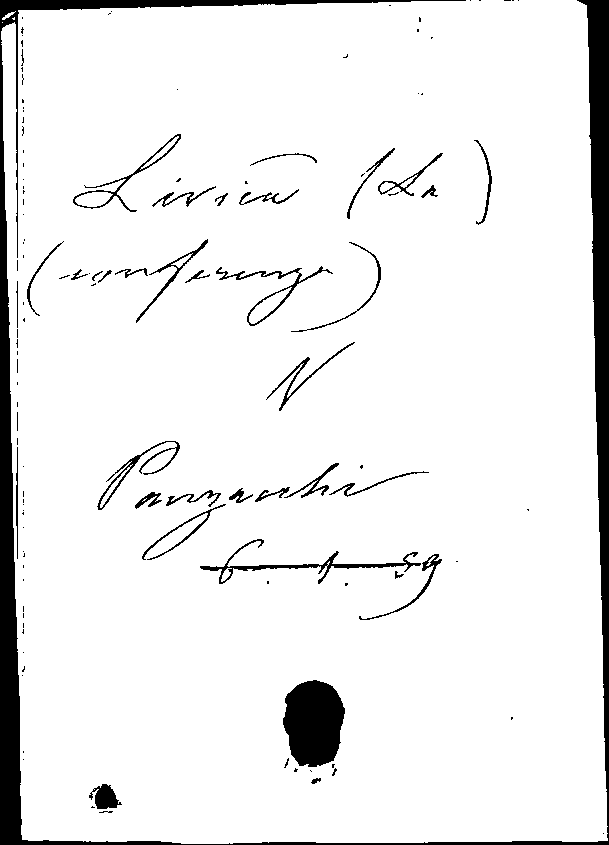 Lirica (La)
(conferenza)
V
Panzacchi
6. 1. 59